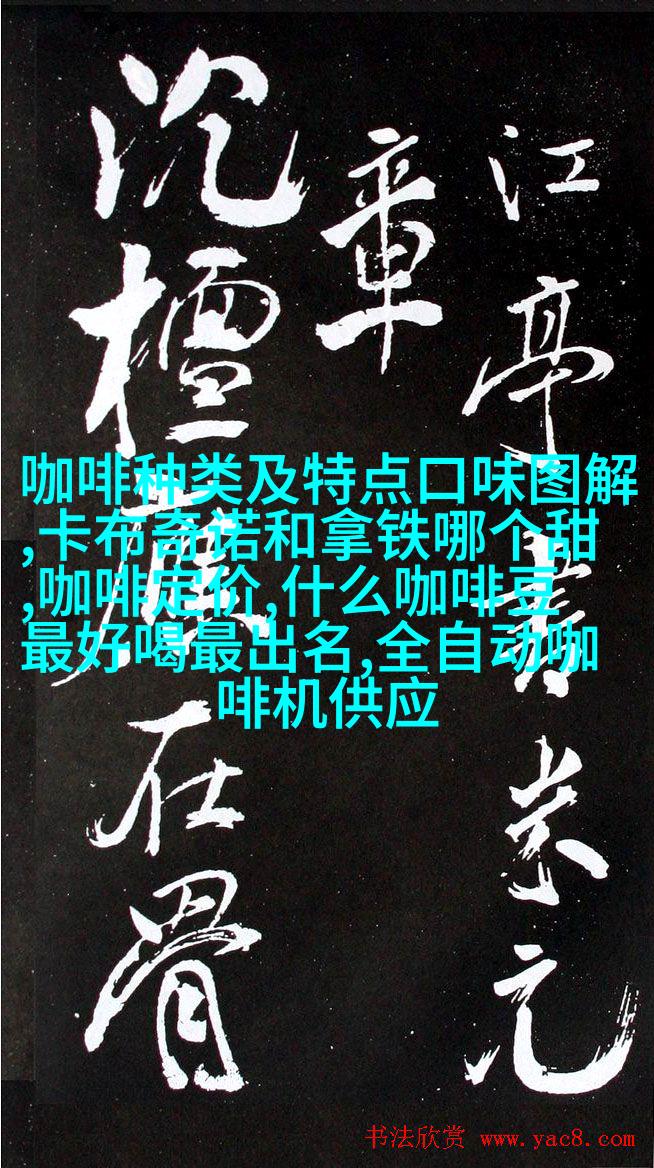 江亭書米元
章
沉檀在骨
咖啡种类及特点口味图解
,卡布奇诺和拿铁哪个甜
,咖啡定价,什么咖啡豆
最好喝最出名,全自动咖
啡机供应
书法欣赏 www.yac8.com